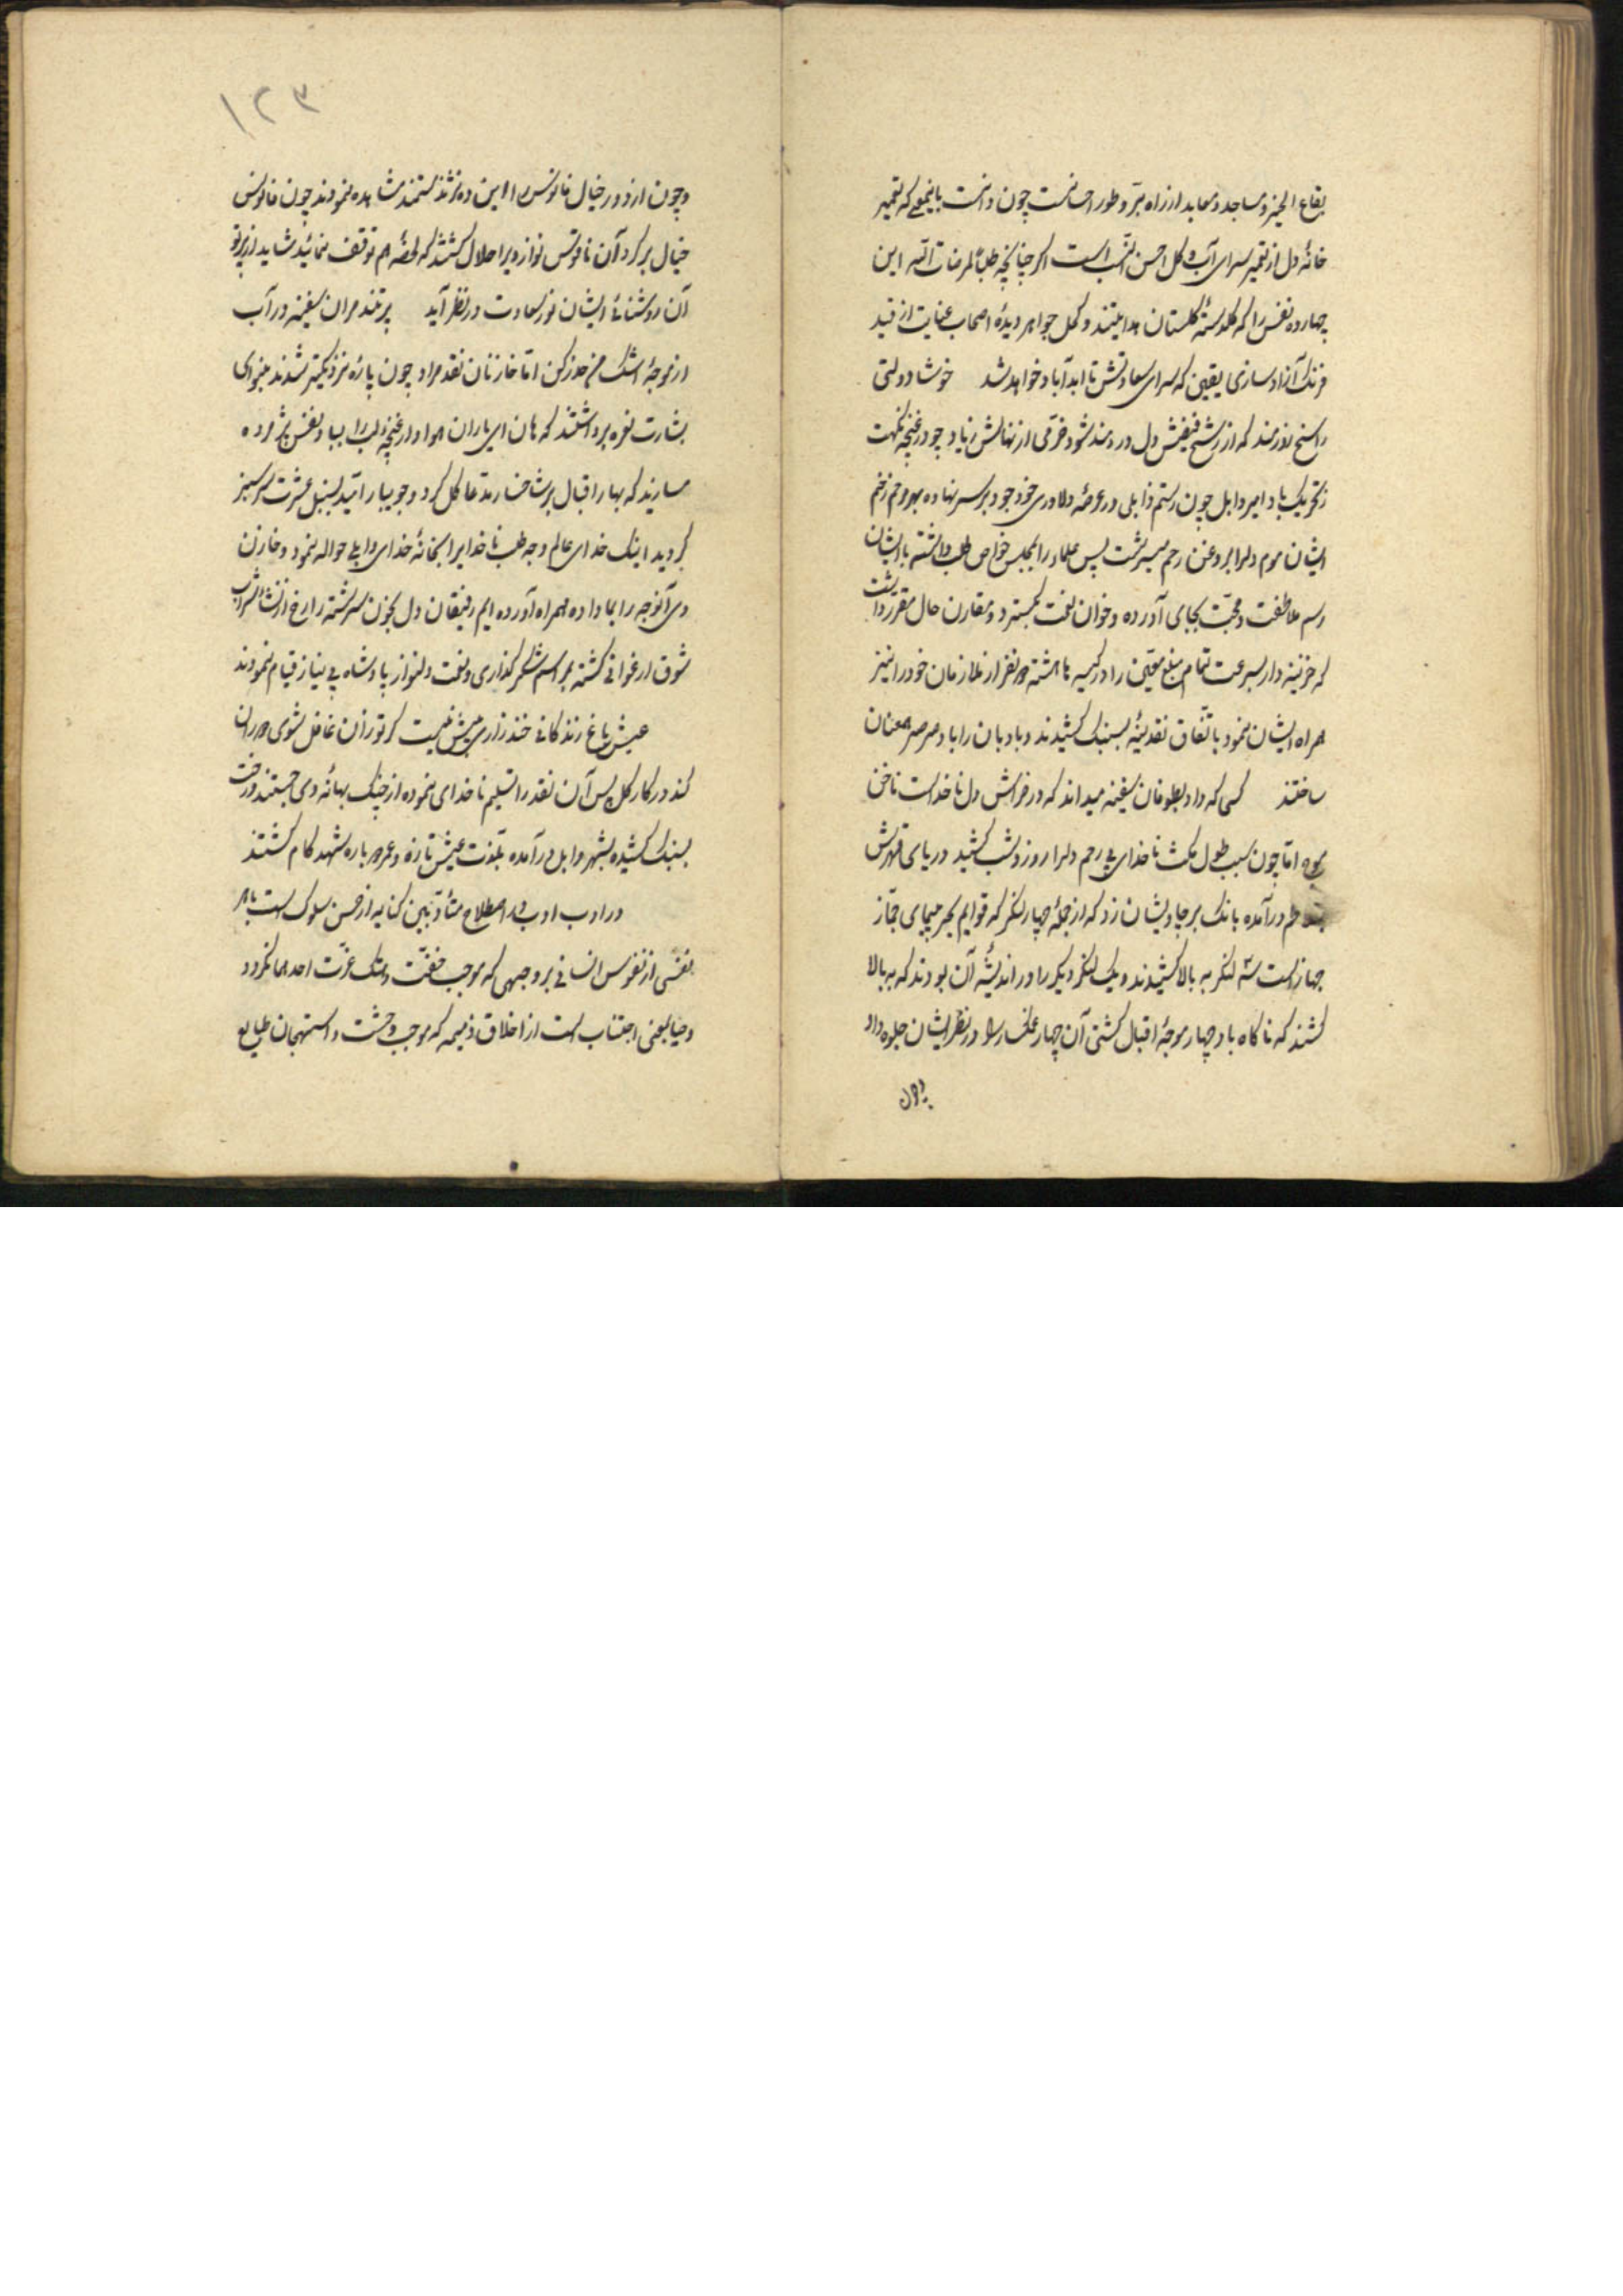 بقاع الخیر و مساجد و معابد از راه تبرّ و طور احسانست چون دانست باینمعنی که تعمیر
خانهٔ دل از تعمیر سرای آب و گل احسن و انسب است اگر چنانچه طلباً لمرضات الله این
چهارده نفس را که گلدستهٔ گلستان هدایتند و کحل جواهر دیدهٔ اصحاب عنایت از قید
فرنگ آزاد سازی یقین که سرای سعادتش تا ابد آباد خواهد شد خوشا دولتی
راسخ نورمند که از رشح فیضش دل دردمند شود خرمی از نهالش زیاد چو در غنچه نکهت
ز تحریک باد امیر وابل چون رستم زابلی در عرصهٔ دلاوری خود جود بر سر نهاده مرهم زخم
ایشان موم دلرا بروغن رحم میسرشت پس علما را بمجلس خواص طلب داشته با ایشان
رسم ملاطفت و محبّت بجای آورده و خوان نعمت بگسترد و مقارن حال مقرّر داشت
که خزینه دار بسرعت تمام مبلغ معیّن را در کیسه ها هشته دو نفر از ملازمان خود را نیز
همراه ایشان نمود باتّفاق نقدینه بسنبک کشیدند و بادبان را با دم صرصر همعنان
ساختند کسی که داد بطوفان سفینه میداند که در خراش دل ناخداست ناخن
موج امّا چون سبب طول مکث ناخدای بی رحم دلرا روز بشب کشید دریای قهرش
بتلاطم درآمده بانک بر جاویشان زد که از جملهٔ چهار لنگر که قوایم بحر پیمای جمّاز
جهاز است سه لنگر به بالا کشیدند و یک لنگر دیگر را در اندیشهٔ آن بودند که به بالا
کشند که ناگاه باد چهار موجهٔ اقبال کشتی آن چهار غمخوار را در نظر ایشان جلوه داد
و چون
۱۲۳
و چون از دور خیال فانوس را این ده نژند مستمند مشاهده نمودند چون فانوس
خیال بر گرد آن ناقوس نواز دیر اضلال گشتند که لحظهٔ هم توقف نمائید شاید از پرتو
آن روشنائی ایشان نور سعادت در نظر آید پر تند مران سفینه در آب
از موجهٔ اشک من حذر کن امّا خازنان نقد مراد چون پارهٔ نزدیکتر شدند بنوای
بشارت نعره برداشتند که هان ای یاران هوادار غنچهٔ لب را بباد نفس پژمرده
مسازید که بهار اقبال بر شاخسار مدّعا گل کرد و جویبار امّید بسنبل عشرت سرسبز
گردید اینک خدای عالم وجه طلب ناخدا را بخانهٔ خدای وابلی حواله نمود و خازن
وی آنوجه را بما داده همراه آورده ایم رفیقان دل بخون سرشته را رخ از نشأ شراب
شوق ارغوانی گشته بمراسم شکر گذاری و نعت دلنواز پادشاه بی نیاز قیام نمودند
عیش باغ زندگانی خنده زاری بیش نیست گر تو زان غافل شوی دوران
کند در کار گل پس آن نقد را تسلیم ناخدای نموده از چنک بهانهٔ وی جستند و رخت
بسنبک کشیده بشهر وابل درآمده بلذّت عیش تازه و عمر دوباره شهد کام گشتند
در ادب ادب در اصطلاح متأدّبین کنایه از حسن سلوک است با هر
نفسی از نفوس انسانی بروجهی که موجب خفّت و هتک عزّت احدهما نگردد
و حیا بمعنی اجتناب است از اخلاق ذمیمه که موجب وحشت و استهجان طبایع